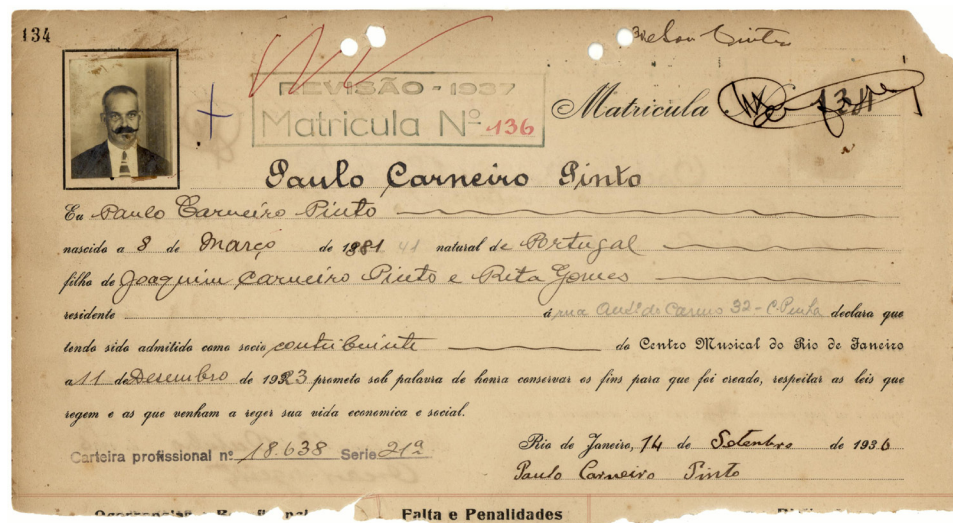 134
REVISÃO - 1937
Matricula Nº 136
Matricula
Paulo Carneiro Pinto
Eu Paulo Carneiro Pinto
nascido a 8 de Março de 1881 41 natural de Portugal
filho de Joaquim Carneiro Pinto e Rita Gomes
residente á rua do Carmo 32 - declara que
tendo sido admitido como socio contribuinte do Centro Musical do Rio de Janeiro
a 11 de Desembro de 1923 prometo sob palavra de honra conservar os fins para que foi creado, respeitar as leis que
regem e as que venham a reger sua vida economica e social.
Rio de Janeiro, 14 de Setenbro de 1936
Carteira profissional nº 18.638 Serie 21ª
Paulo Carneiro Pinto
Falta e Penalidades